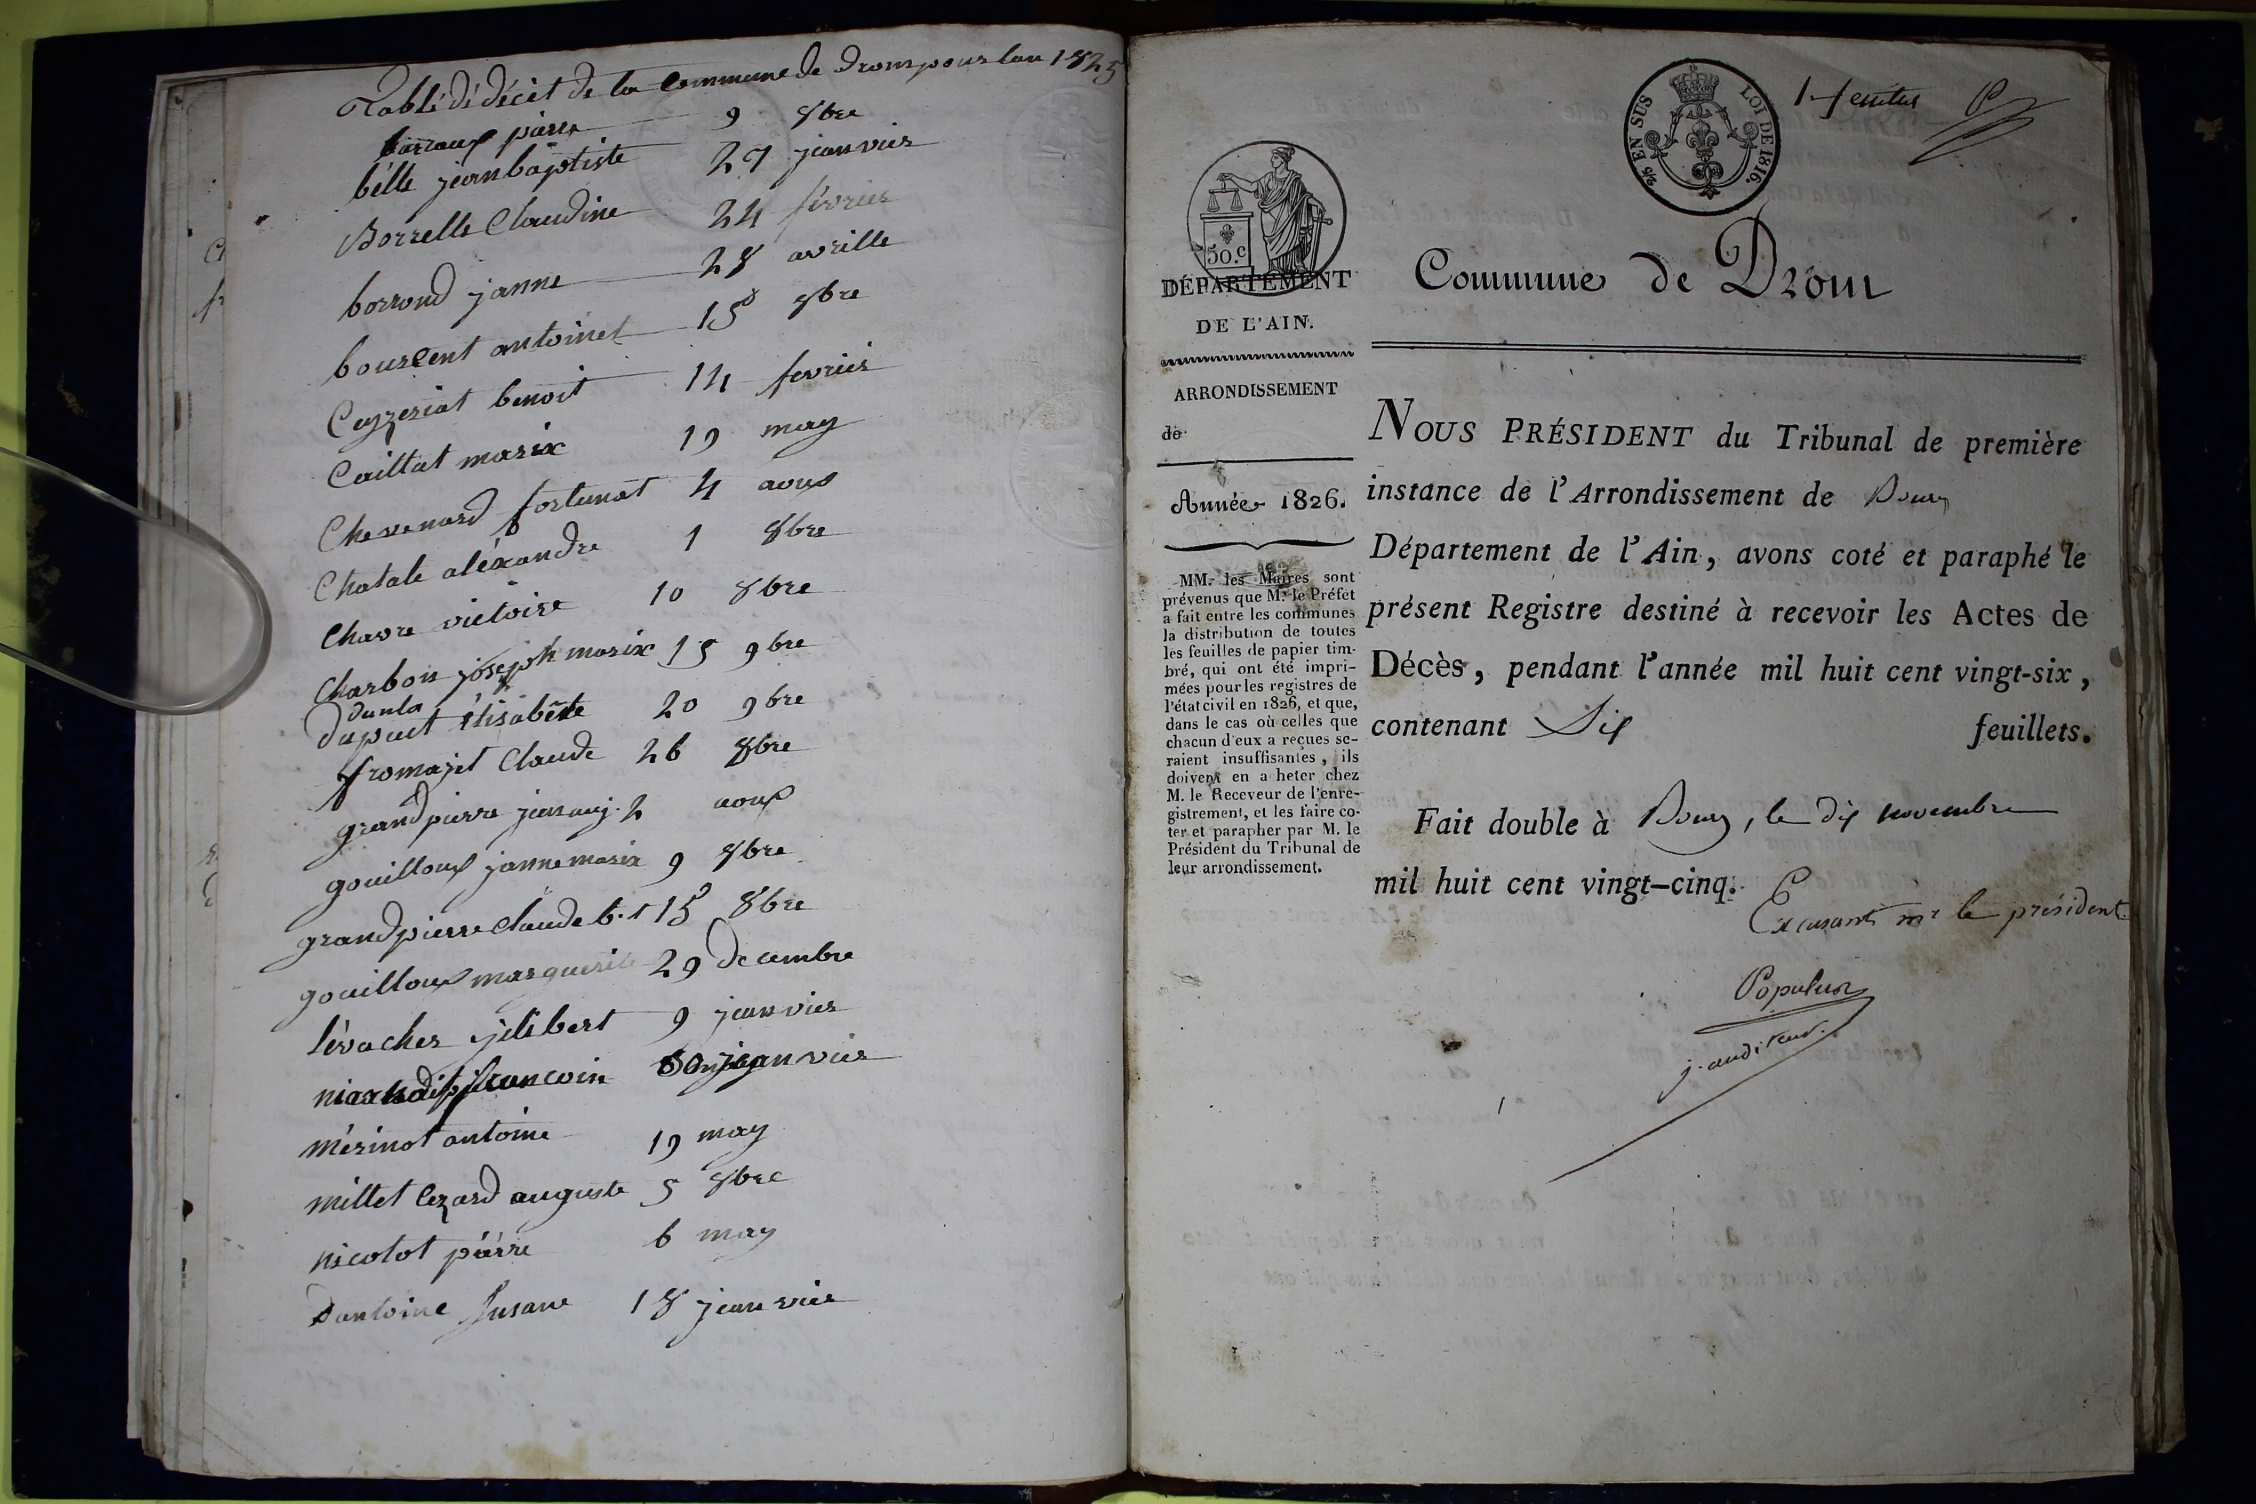 Tablé dé décét de la Commune de Drom pour lan 1825
barraux pierre 9 8bre
bélle jeanbaptiste 27 jeanvier
Borrelle Claudine 24 février
borrond janne 28 avrille
bourcent antoinet 15 8bre
Cuzzeriat benoit 14 fevriér
Caillat marie 19 may
Chevenard fortunat 4 aoux
Chatale aléxandre 1 8bre
Chavre victoire 10 8bre
Charbon joseph marie 15 9bre
dunla
Dupuit élisabéte 20 9bre
fromajet Claude 26 8bre
grandpierre 2 aoux
gouilloux janne marie 9 8bre
grandpierre Claude b.t 15 8bre
gouilloux marguerite 29 Decembre
lévacher jilibert 9 jeanvier
francoin jeanvier
mérinot antoine 19 may
millet Cezard auguste 5 8bre
nicolot piérre 6 may
Dantoine Susane 18 jeanvier
2/5 EN SUS LOI DE 1816.
1er feuillet
50.c
DÉPARTEMENT
DE L'AIN.
ARRONDISSEMENT
de
Année 1826.
MM. les Maires sont
prévenus que M. le Préfet
a fait entre les communes
la distribution de toutes
les feuilles de papier tim-
bré, qui ont été impri-
mées pour les registres de
l'état civil en 1826, et que,
dans le cas où celles que
chacun d'eux a reçues se-
raient insuffisantes, ils
doivent en a heter chez
M. le Receveur de l'enre-
gistrement, et les faire co-
ter et parapher par M. le
Président du Tribunal de
leur arrondissement.
Commune de Drom
NOUS PRÉSIDENT du Tribunal de première
instance de l'Arrondissement de Bourg
Département de l'Ain, avons coté et paraphé le
présent Registre destiné à recevoir les Actes de
Décès, pendant l'année mil huit cent vingt-six,
contenant Six feuillets.
Fait double à Bourg, le dix novembre
mil huit cent vingt-cinq.
Excusant mr le président
Populus
j. auditeur.